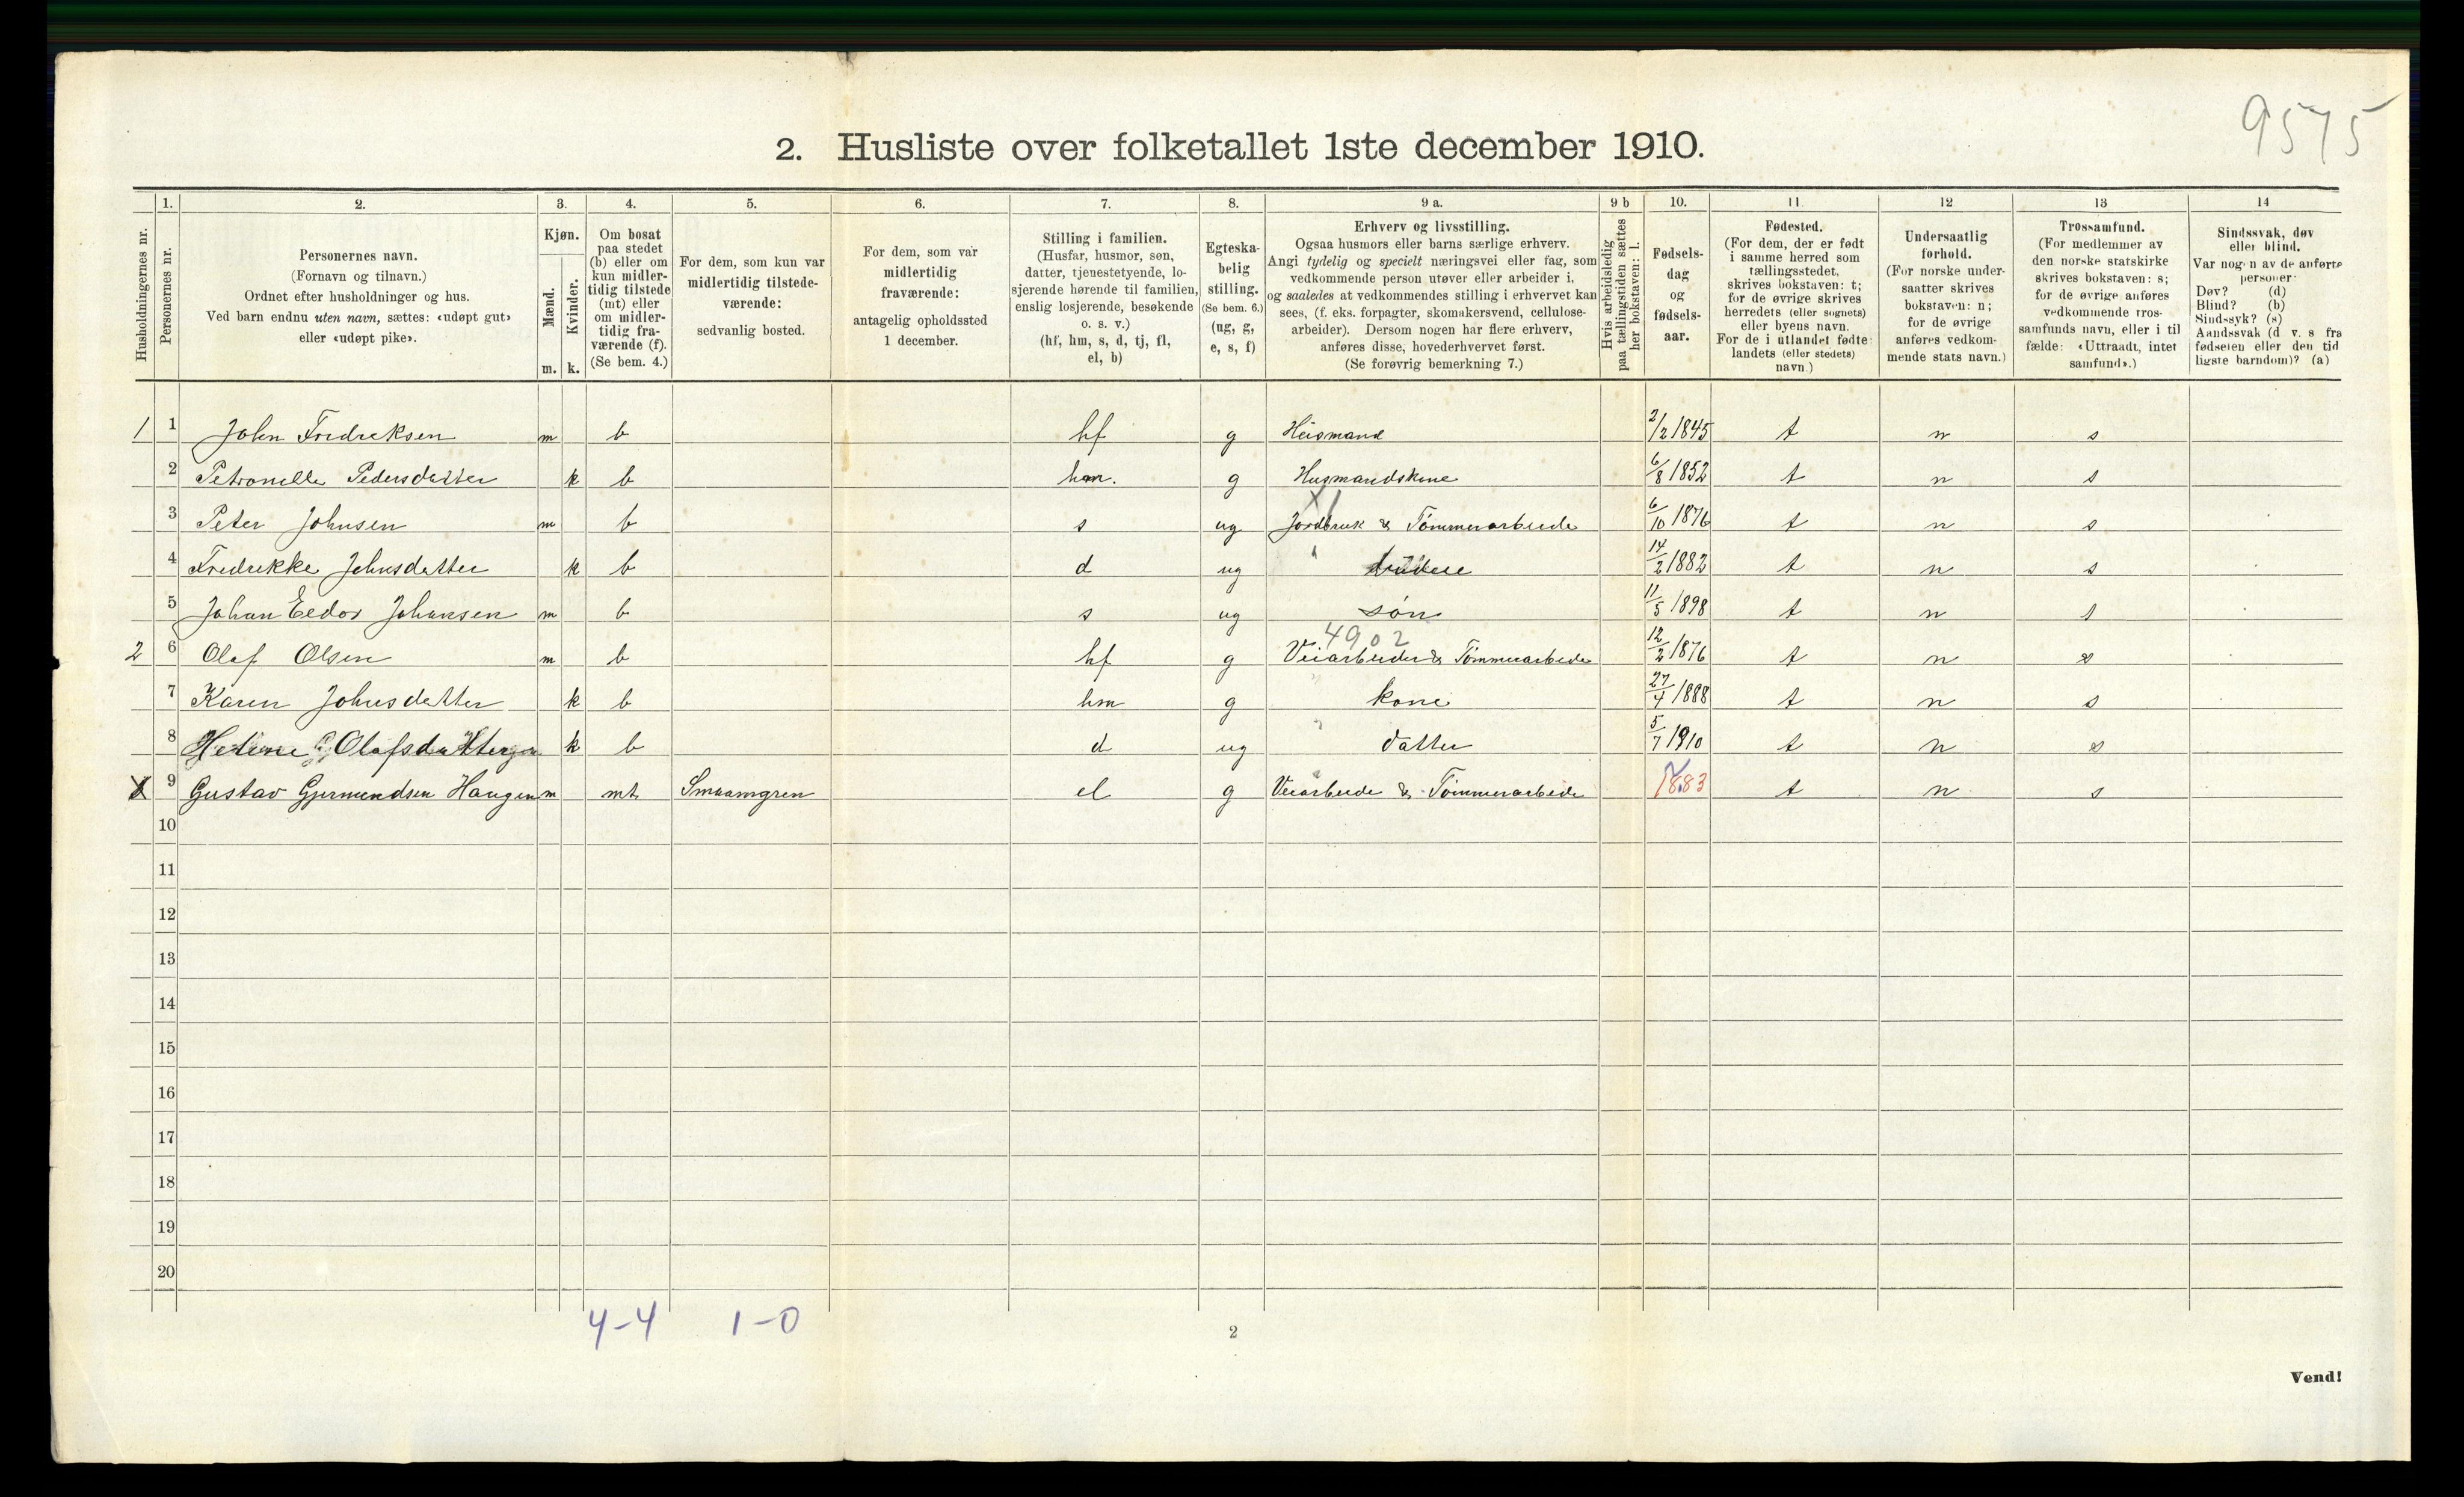 9575
2. Husliste over folketallet 1ste december 1910.
Husholdningernes nr.
1.
Personernes nr.
2.
Personernes navn.
(Fornavn og tilnavn.)
Ordnet efter husholdninger og hus.
Ved barn endnu uten navn, sættes: «udøpt gut»
eller «udøpt pike».
3.
Kjøn.
Mænd.
Kvinder.
m. k.
4.
Om bosat
paa stedet
(b) eller om
kun midler-
tidig tilstede
(mt) eller
om midler-
tidig fra-
værende (f).
(Se bem. 4.)
5.
For dem, som kun var
midlertidig tilstede-
værende:
sedvanlig bosted.
6.
For dem, som var
midlertidig
fraværende:
antagelig opholdssted
1 december.
7.
Stilling i familien.
(Husfar, husmor, søn,
datter, tjenestetyende, lo-
sjerende hørende til familien,
enslig losjerende, besøkende
o. s. v.)
(hf, hm, s, d, tj, fl,
el, b)
8.
Egteska-
belig
stilling.
(Se bem. 6.)
(ug, g,
e, s, f)
9 a.
Erhverv og livsstilling.
Ogsaa husmors eller barns særlige erhverv.
Angi tydelig og specielt næringsvei eller fag, som
vedkommende person utøver eller arbeider i,
og saaledes at vedkommendes stilling i erhvervet kan
sees, (f. eks. forpagter, skomakersvend, cellulose-
arbeider). Dersom nogen har flere erhverv,
anføres disse, hovederhvervet først.
(Se forøvrig bemerkning 7.)
9 b
Hvis arbeidsledig
paa tællingstiden sættes
her bokstaven: l.
10.
Fødsels-
dag
og
fødsels-
aar.
11.
Fødested.
(For dem, der er født
i samme herred som
tællingsstedet,
skrives bokstaven: t;
for de øvrige skrives
herredets (eller sognets)
eller byens navn.
For de i utlandet fødte
landets (eller stedets)
navn.)
12
Undersaatlig
forhold.
(For norske under-
saatter skrives
bokstaven: n;
for de øvrige
anføres vedkom-
mende stats navn.)
13
Trossamfund.
(For medlemmer av
den norske statskirke
skrives bokstaven: s;
for de øvrige anføres
vedkommende tros-
samfunds navn, eller i til
fælde: «Uttraadt, intet
samfund».)
14
Sindssvak, døv
eller blind.
Var nogen av de anførte
personer:
Døv? (d)
Blind? (b)
Sindssyk? (s)
Aandssvak (d v. s fra
fødselen eller den tid
ligste barndom)? (a)
1 1 John Fredreksen m b hf g Huismand 2/2 1845 t n s
2 Petronelle Pedersdatter k b hm. g Husmandskone 6/8 1852 t n s
3 Peter Johnsen m b s ug Jordbruk & Tömmerarbeide 6/10 1876 t n s
4 Fredrekke Johnsdatter k b d ug 14/2 1882 t n s
5 Johan Johansen m b s ug søn 11/5 1898 t n s
4902
2 6 Olaf Olsen m b hf g Veiarbeider & Tömmerarbeide 12/2 1876 t n s
7 Karen Johnsdatter k b hm g kone 27/4 1888 t n s
8 Olafsdatter k b d ug datter 5/7 1910 t n s
x 9 Gustav Gjermundsen Haugen m mt Smaamgren el g Veiarbeide & Tömmerarbeide 1883 t n s
10
11
12
13
14
15
16
17
18
19
20
4-4 1-0
2
Vend!